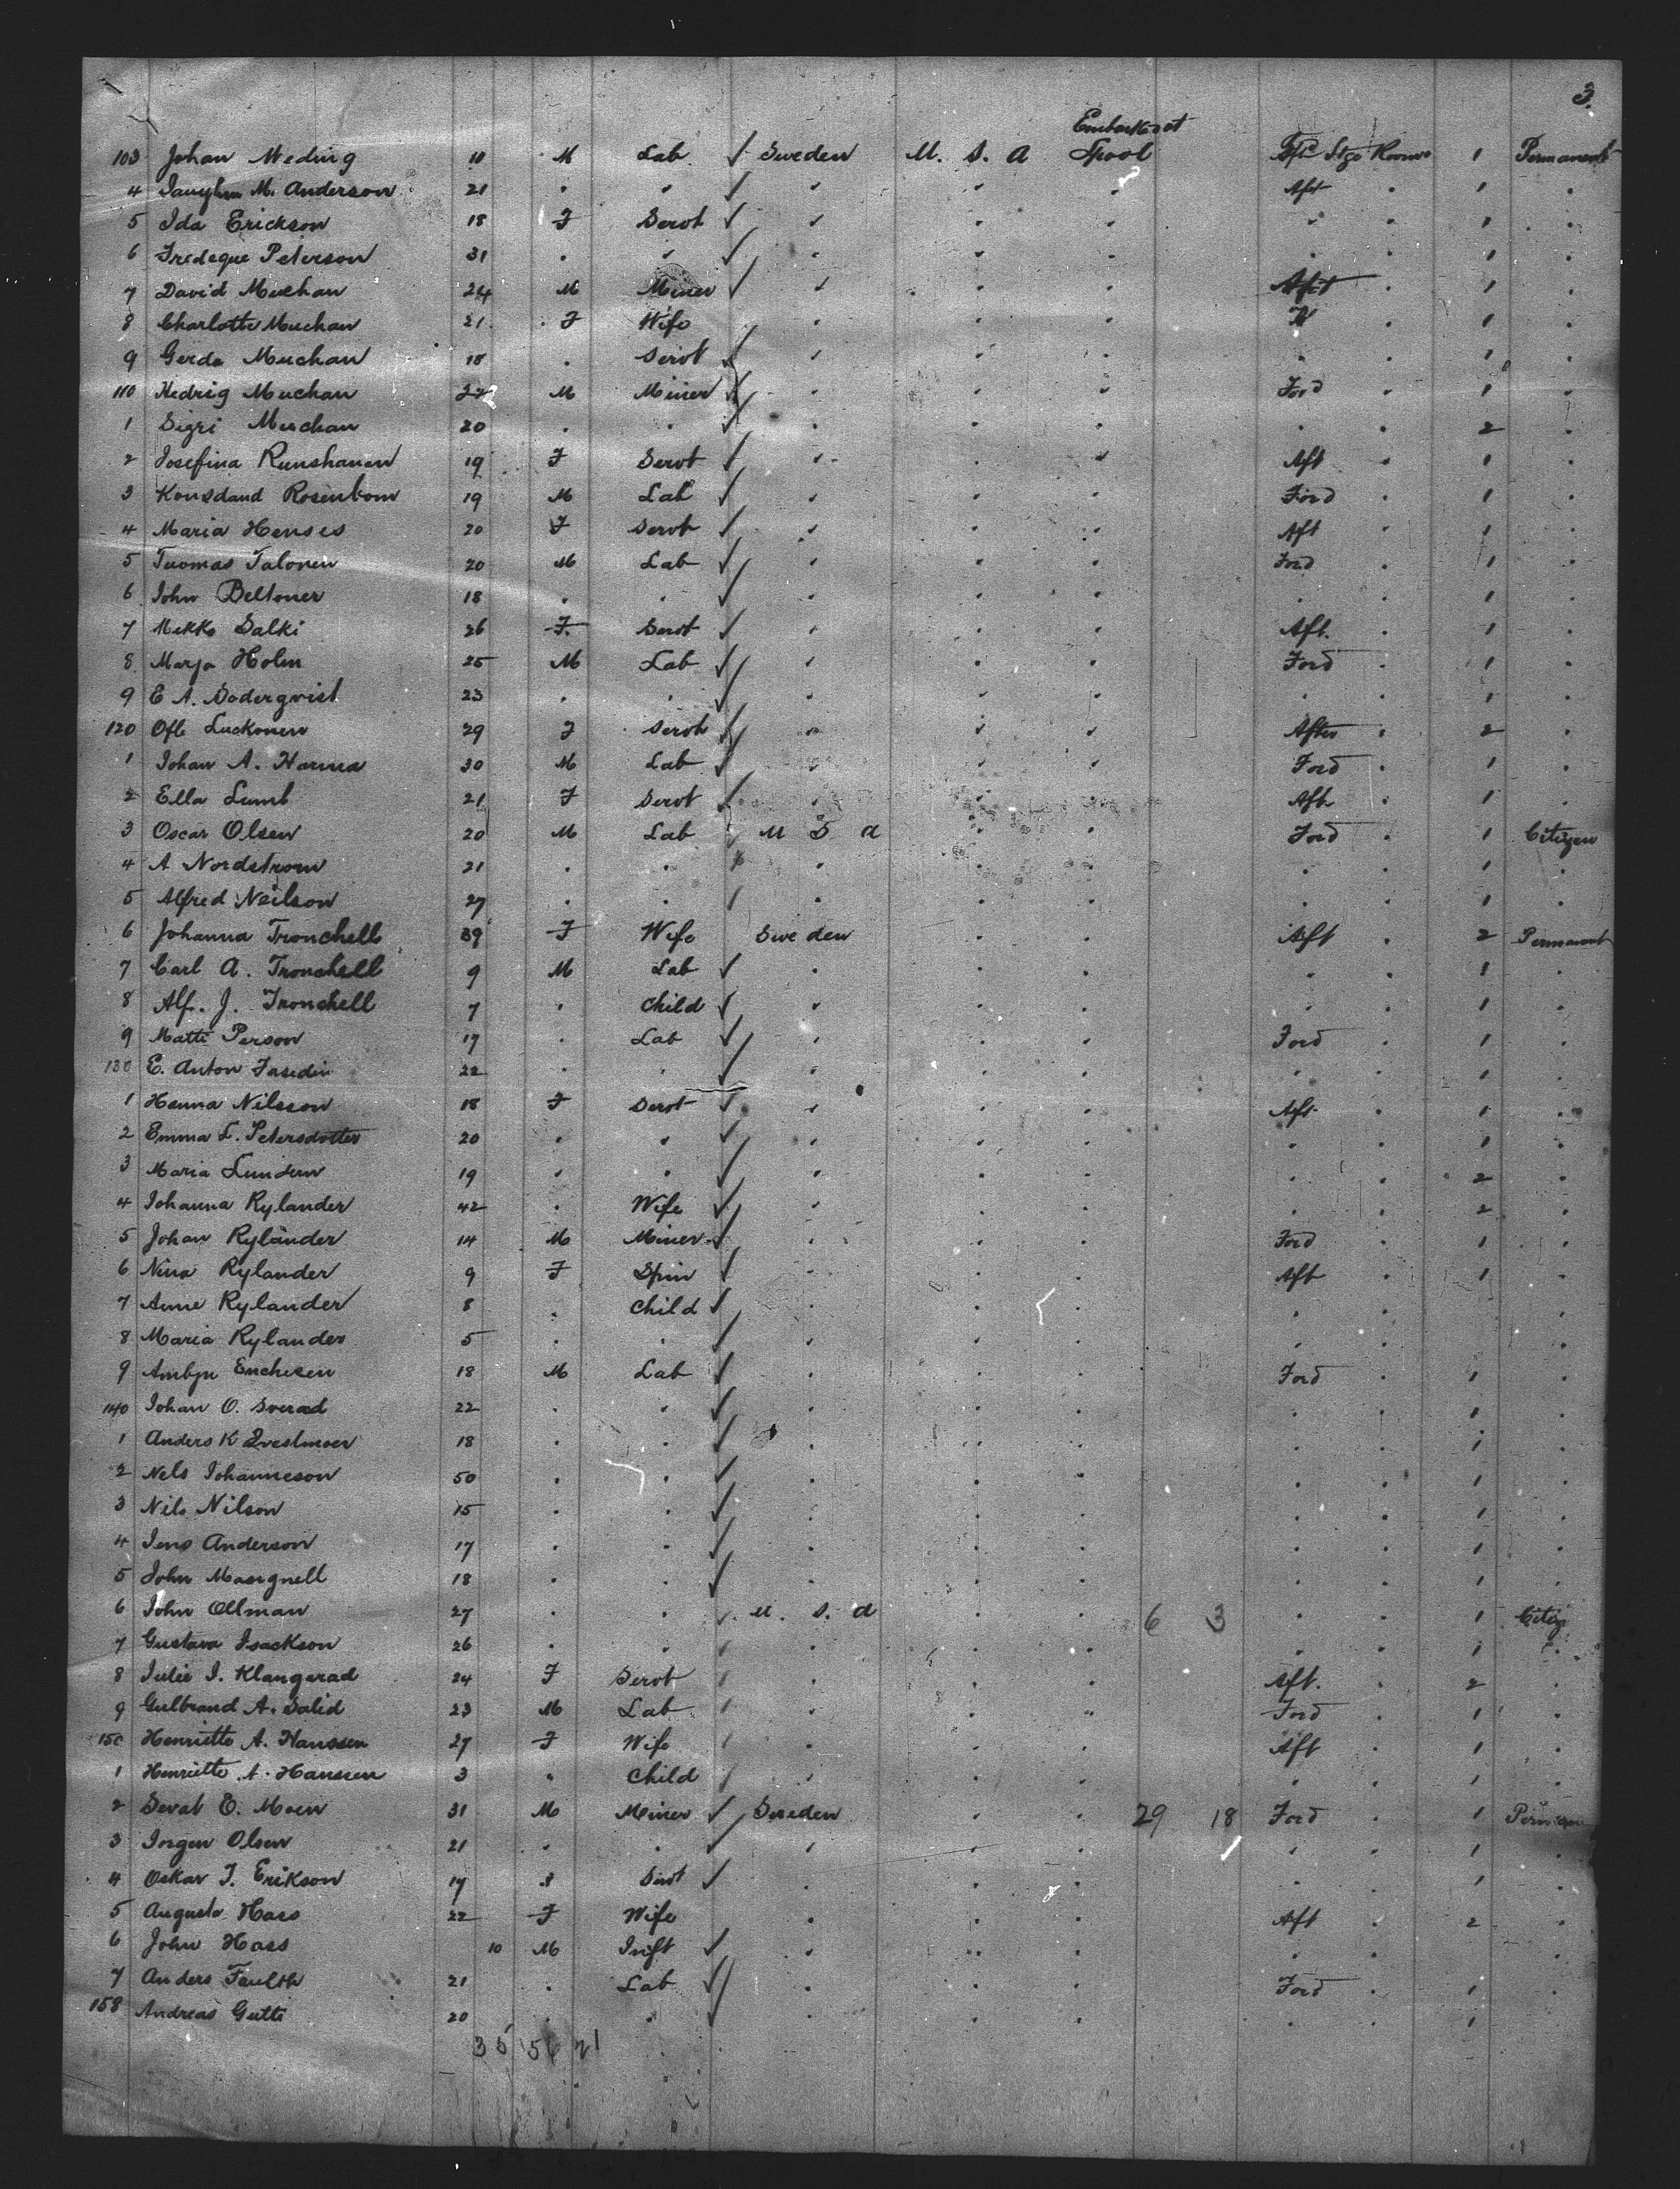 3.
Embarked at
103 Johan Meding 18 M Lab ✓ Sweden U. S. A Lpool Stge Rooms 1 Permanent
4 M. Anderson 21 " " ✓ " " " Aft " 1 "
5 Ida Erickson 18 F Servt ✓ " " " " " 1 "
6 Fredeque Peterson 31 " " ✓ " " " " " 1 "
7 David Muchan 24 M Miner ✓ " " " Aft " 1 "
8 Charlotte Muchan 21 F Wife " " " " " 1 "
9 Gerda Muchan 18 " Servt ✓ " " " " " 1 "
110 Hedrig Muchan M Miner ✓ " " " Ford " 1 "
1 Sigri Muchan 20 " " ✓ " " " " " 2 "
2 Josefina Runshanen 19 F Servt ✓ " " " Aft " 1 "
3 Konsdand Rosenbom 19 M Lab ✓ " " " Ford " 1 "
4 Maria Henses 20 F Servt ✓ " " " Aft " 1 "
5 Tuomas Talonen 20 M Lab ✓ " " " Ford " 1 "
6 John Beltoner 18 " " ✓ " " " " " 1 "
7 Mekko Salki 26 F. Servt ✓ " " " Aft. " 1 "
8 Marja Holm 25 M Lab ✓ " " " Ford " 1 "
9 E A. Soderqvist 23 " " ✓ " " " " " 1 "
120 Ofb Luckonen 29 F Servt ✓ " " " After " 2 "
1 Johan A. Hanna 30 M Lab ✓ " " " Ford " 1 "
2 Ella Lumb 21 F Servt ✓ " " " Aft " 1 "
3 Oscar Olsen 20 M Lab U S A " " Ford " 1 Citizen
4 A Nordstrom 21 " " " " " " " 1 "
5 Alfred Neilson 27 " " " " " " " 1 "
6 Johanna Tronchell 39 F Wife Sweden " " Aft " 2 Permanent
7 Carl A. Tronchell 9 M Lab ✓ " " " " " 1 "
8 Alf. J. Tronchell 7 " Child ✓ " " " " " 1 "
9 Matti Person 17 " Lab ✓ " " " Ford " 1 "
130 E. Anton Fasedin 22 " " ✓ " " " " " 1 "
1 Hanna Nilsson 18 F Servt ✓ " " " Aft " 1 "
2 Emma L. Petersdotter 20 " " ✓ " " " " " 1 "
3 Maria Lundern 19 " " ✓ " " " " " 2 "
4 Johanna Rylander 42 " Wife ✓ " " " " " 2 "
5 Johan Rylander 14 M Miner ✓ " " " Ford " 1 "
6 Nina Rylander 9 F Spin ✓ " " " Aft " 1 "
7 Anne Rylander 8 " Child ✓ " " " " " "
8 Maria Rylander 5 " " ✓ " " " " " "
9 Enchesen 18 M Lab ✓ " " " Ford " 1 "
140 Johan O. Sverad 22 " " ✓ " " " " " 1 "
1 Anders K 18 " " ✓ " " " " " 1 "
2 Nels Johanneson 50 " " ✓ " " " " " 1 "
3 Nils Nilson 15 " " ✓ " " " " " 1 "
4 Jens Anderson 17 " " ✓ " " " " " 1 "
5 John Masrgnell 18 " " ✓ " " " " " 1 "
6 John Ollman 27 " " U. S. A " " 6 3 " " 1 Citiz
7 Gustava Isackson 26 " " " " " " " 1 "
8 Julie I. Klangerad 24 F Servt " " " Aft. " 2 "
9 Gulbrand A. Salid 23 M Lab " " " Ford " 1 "
150 Henriette A. Hanssen 27 F Wife " " " Aft " 1 "
1 Henriette A. Hanssen 3 " Child " " " " " 1 "
2 Sevat E. Moen 31 M Miner ✓ Sweden " " 29 18 Ford " 1 Perman
3 Jorgen Olsen 21 " " ✓ " " " " " 1 "
4 Oskar J. Erikson 17 " Servt ✓ " " " " " 1 "
5 Augusta Hass 22 F Wife " " " Aft " 2 "
6 John Hass 10 M Inft ✓ " " " " " "
7 Anders Faulth 21 " Lab ✓ " " " Ford " 1 "
158 Andreas Gutti 20 " " ✓ " " " " " 1 "
35 56 21